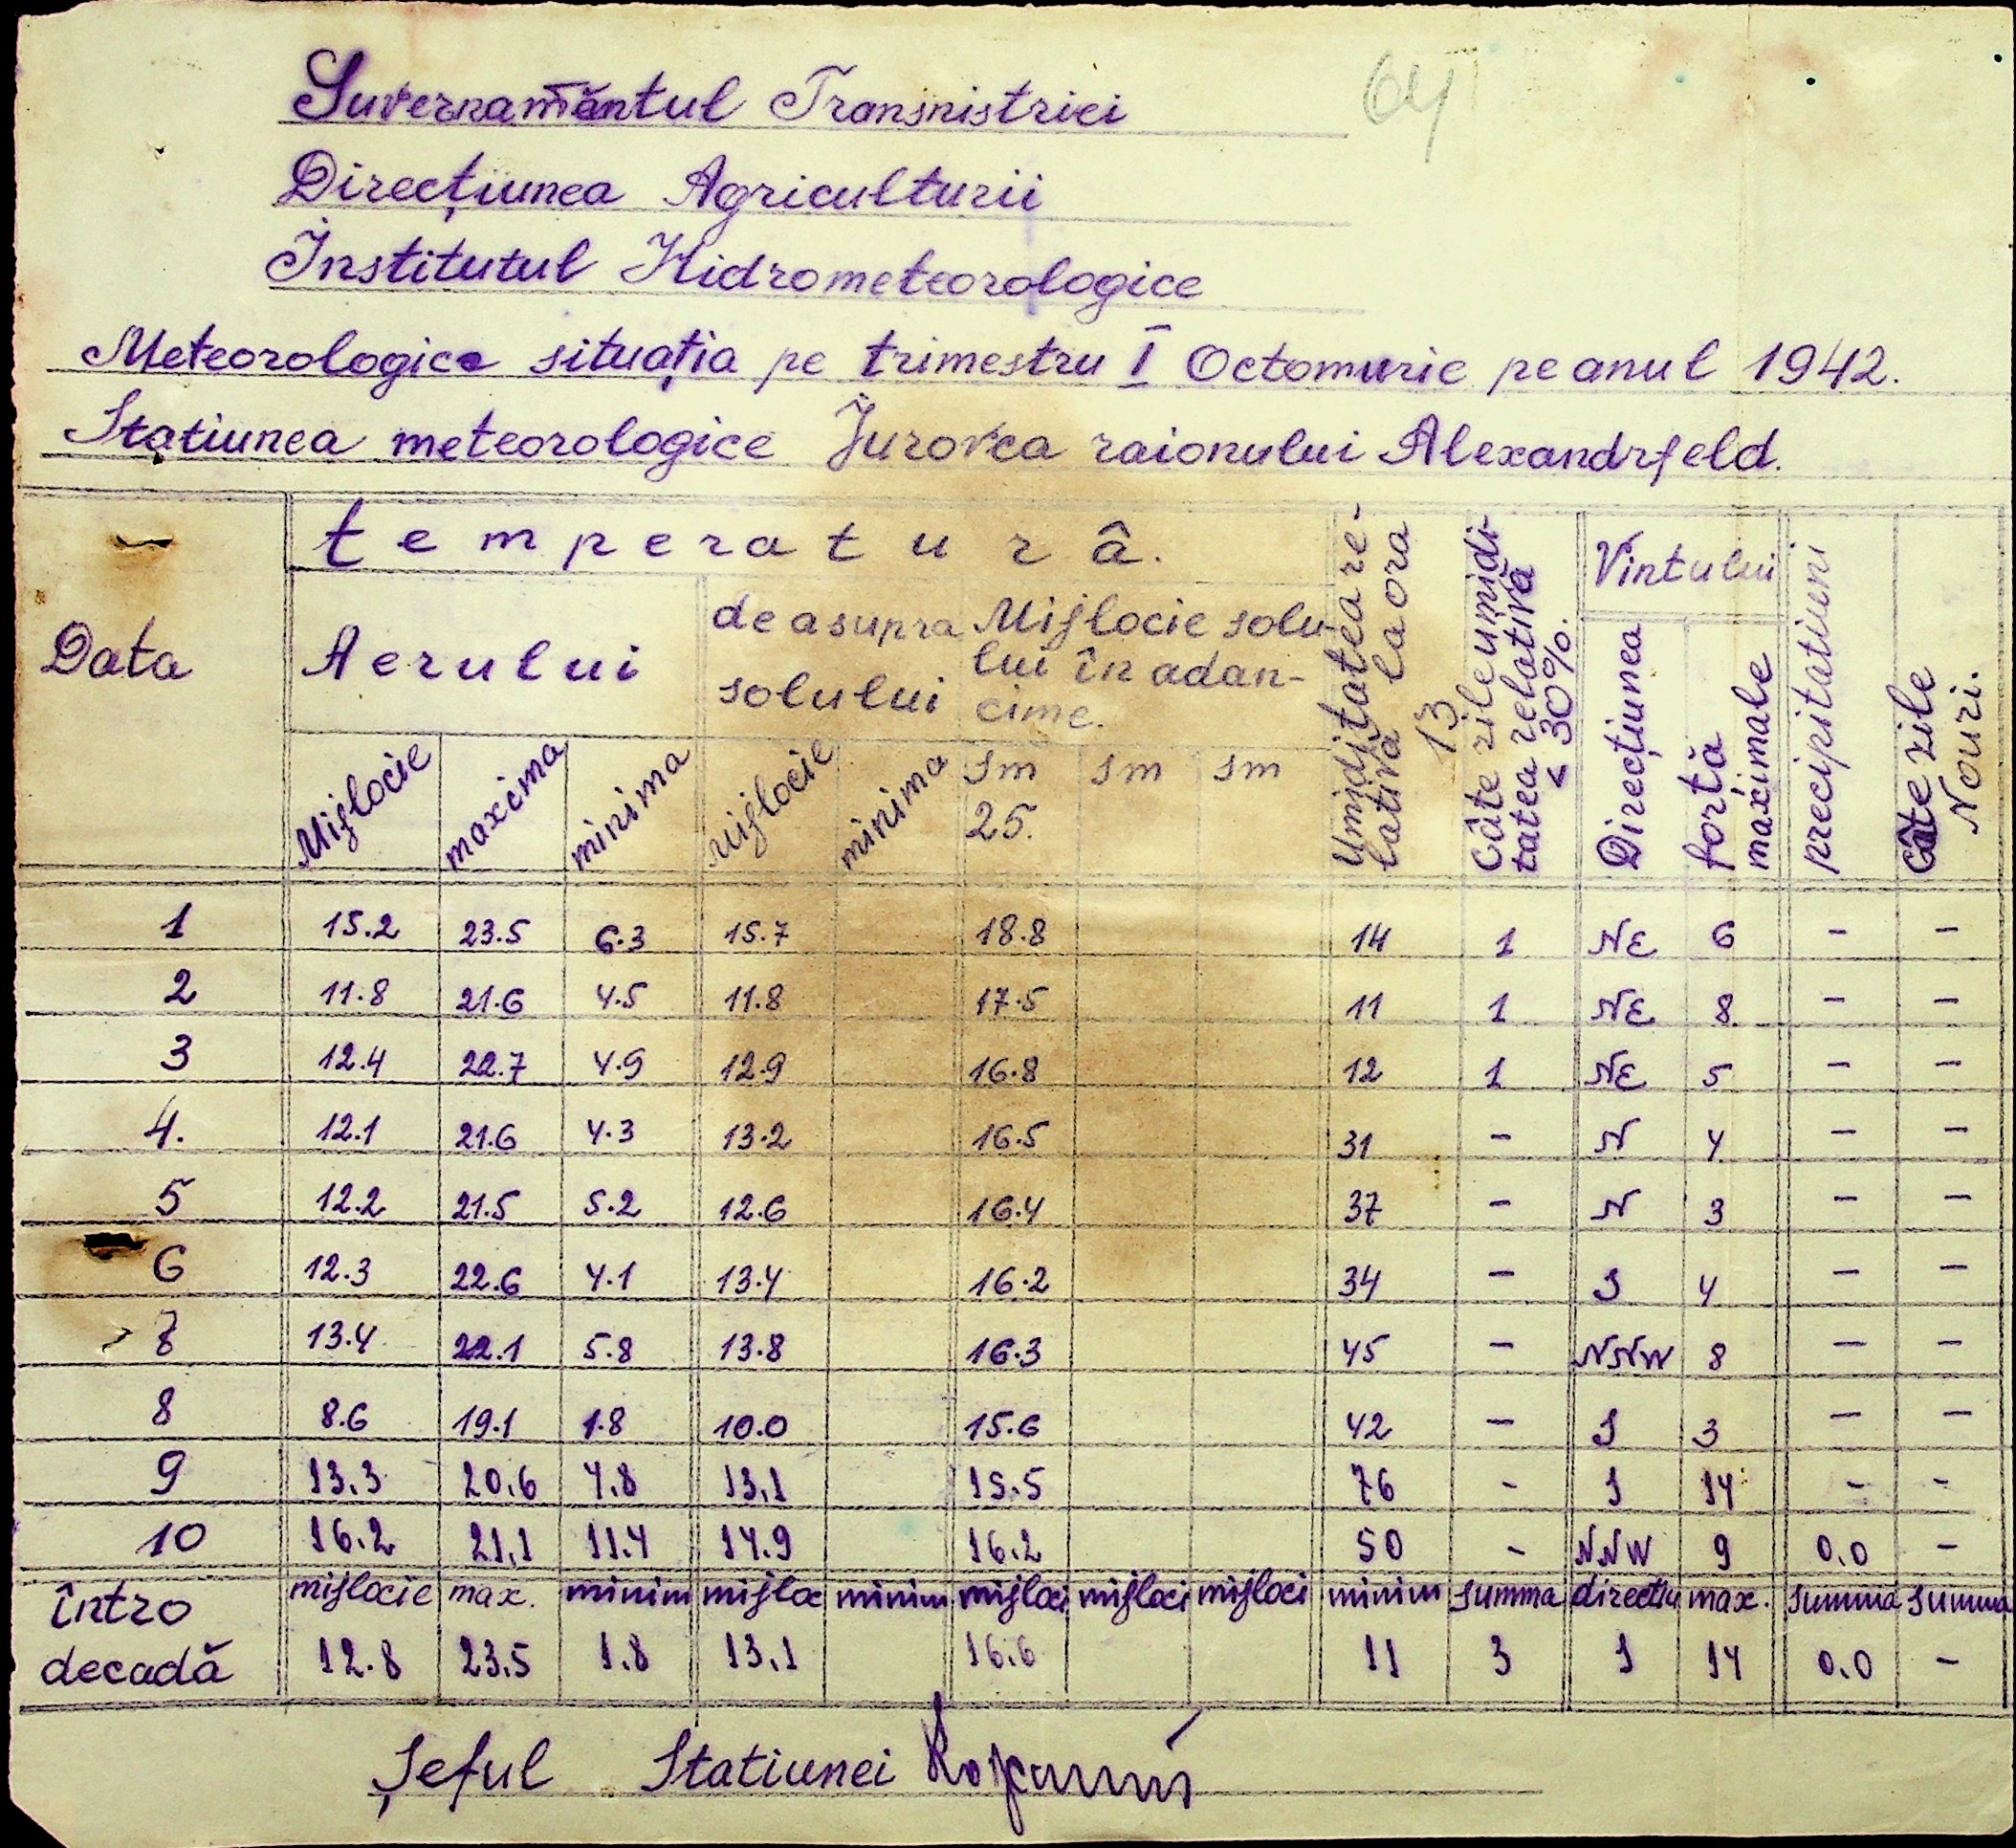 64
Guvernamântul Transnistriei
Direcțiunea Agriculturii
Institutul Hidrometeorologice
Meteorologice situația pe trimestru I Octomvrie pe anul 1942.
Stațiunea meteorologice Jurovca raionului Alexandrfeld.
Data
temperatură.
Aerului
de asupra solului
Mijlocie solului în adancime.
Umiditatea relativă la ora 13
Câte zile umiditatea relativă ≤ 30%.
Vintului
Direcțiunea
forță maximale
precipitatiuni
Câte zile Nouri.
Mijlocie maxima minima Mijlocie minima sm 25. sm sm
1 15.2 23.5 6.3 15.7 18.8 14 1 NE 6 - -
2 11.8 21.6 4.5 11.8 17.5 11 1 NE 8 - -
3 12.4 22.7 4.9 12.9 16.8 12 1 NE 5 - -
4. 12.1 21.6 4.3 13.2 16.5 31 - N 4 - -
5 12.2 21.5 5.2 12.6 16.4 37 - N 3 - -
6 12.3 22.6 4.1 13.4 16.2 34 - S 4 - -
7 13.4 22.1 5.8 13.8 16.3 45 - NNW 8 - -
8 8.6 19.1 1.8 10.0 15.6 42 - S 3 - -
9 13.3 20.6 4.8 13.1 15.5 76 - S 14 - -
10 16.2 21.1 11.4 14.9 16.2 50 - NNW 9 0.0 -
întro decadă
mijlocie max. minim mijloc minim mijloci mijloci mijloci minim summa directiu max. summa summa
12.8 23.5 1.8 13.1 16.6 11 3 S 14 0.0 -
Șeful Statiunei